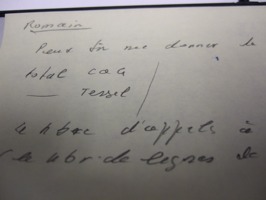 Romain
Peux tu me donner le
total CA
— Tessel
le nbre d'appels à
le nbr de lignes